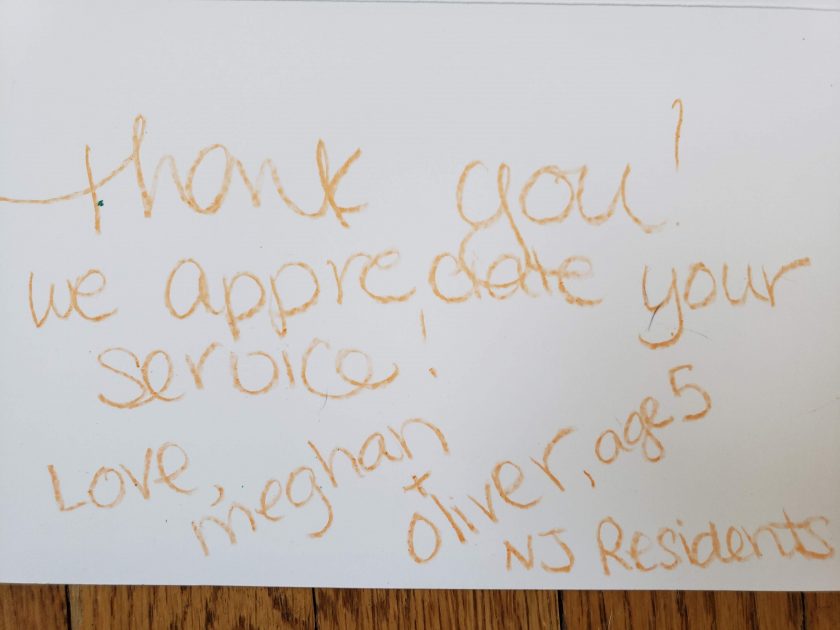 thank you!
we appreciate your
service!
Love,
meghan
+
Oliver, age 5
NJ Residents